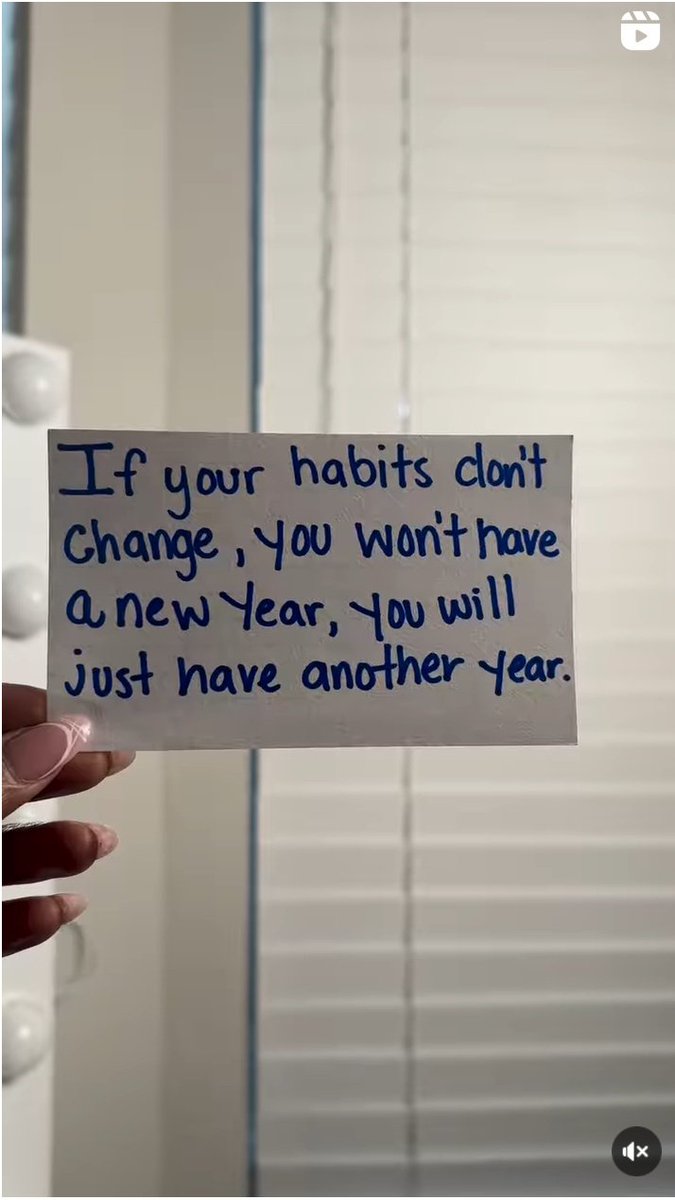 If your habits don't
Change, you won't have
a new Year, you will
just have another year.